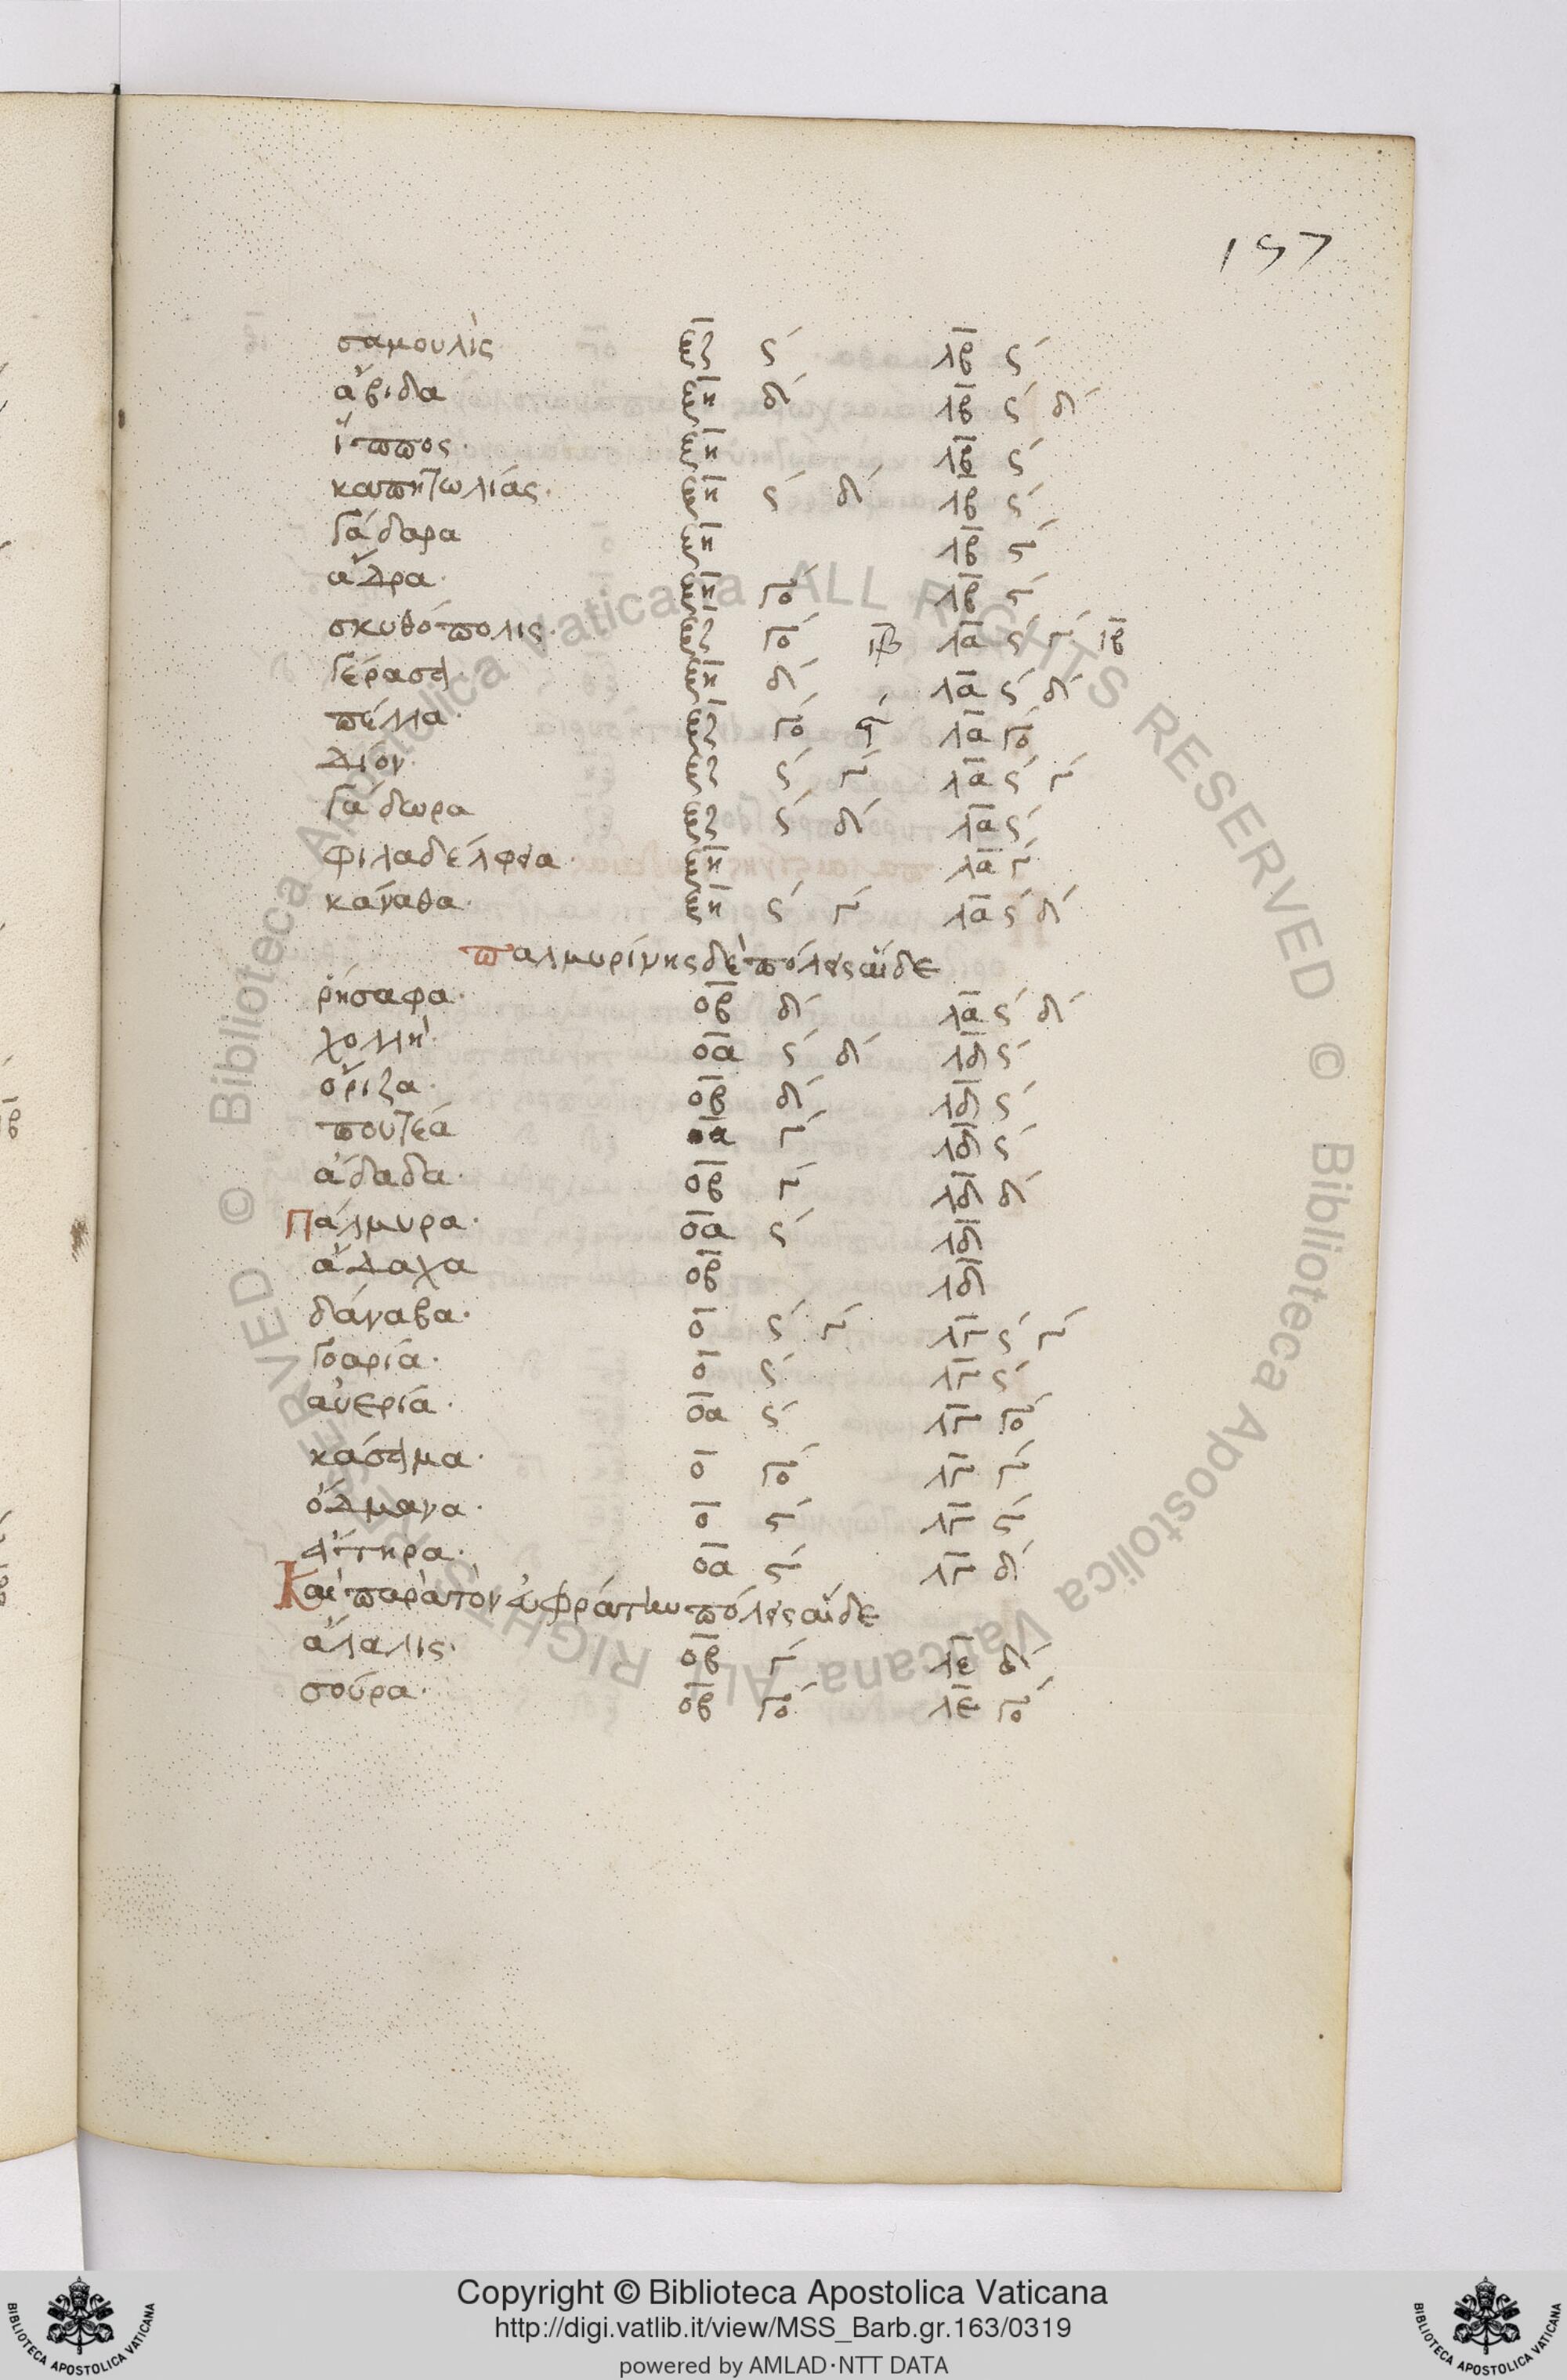 157
σαμουλὶς ξζ ς´ λβ ς´
ἄβιδα ξη δ´ λβ ς´ δ´
ἵππος· ξη λβ ς´
καπητωλιάς· ξη ς´ δ´ λβ ς´
γάδαρα ξη λβ ϛ´
ἄδρα· ξη γο´ λβ ϛ´
σκυθόπολις· ξζ γο´ ιβ λα ς´ γ´ ιβ
γέρασα· ξη δ´ λα ς´ δ´
πέλλα· ξζ γο´ λα γο´
δίον· ξζ ς´ γ´ λα ς´ γ´
γάδωρα ξζ ς´ δ´ λα ς´
φιλαδέλφεια· ξη λα γ´
κάναθα· ξη ς´ γ´ λα ς´ δ´
παλμυρίνης δὲ πόλεις αἵδε
ῥήσαφα· οβ δ´ λα ς´ δ´
χολλὴ· οα ς´ δ´ λδ ς´
ὄριζα· οβ δ´ λδ ς´
πουτεά οα γ´ λδ ς´
ἄδαδα· οβ γ´ λδ δ´
Πάλμυρα· οα ς´ λδ
ἄδαχα οβ λδ
δάναβα· ο ς´ γ´ λγ ς´ γ´
γοαρία· ο ς´ λγ ς´
αὐερία· οα ς´ λγ γο´
κάσαμα· ο γο´ λγ γ´
ὄδμανα· ο ϛ´ λγ ϛ´
ἄττηρα· οα ϛ´ λγ δ´
Καὶ παρὰ τὸν εὐφράτην πόλεις αἵδε
ἄλαλις· οβ γ´ λε δ´
σούρα· οβ γο´ λε γο´
© Biblioteca Apostolica Vaticana ALL RIGHTS RESERVED © Biblioteca Apostolica Vaticana ALL RIGHTS RESERVED
BIBLIOTECA APOSTOLICA VATICANA
Copyright © Biblioteca Apostolica Vaticana
http://digi.vatlib.it/view/MSS_Barb.gr.163/0319
powered by AMLAD·NTT DATA
BIBLIOTECA APOSTOLICA VATICANA